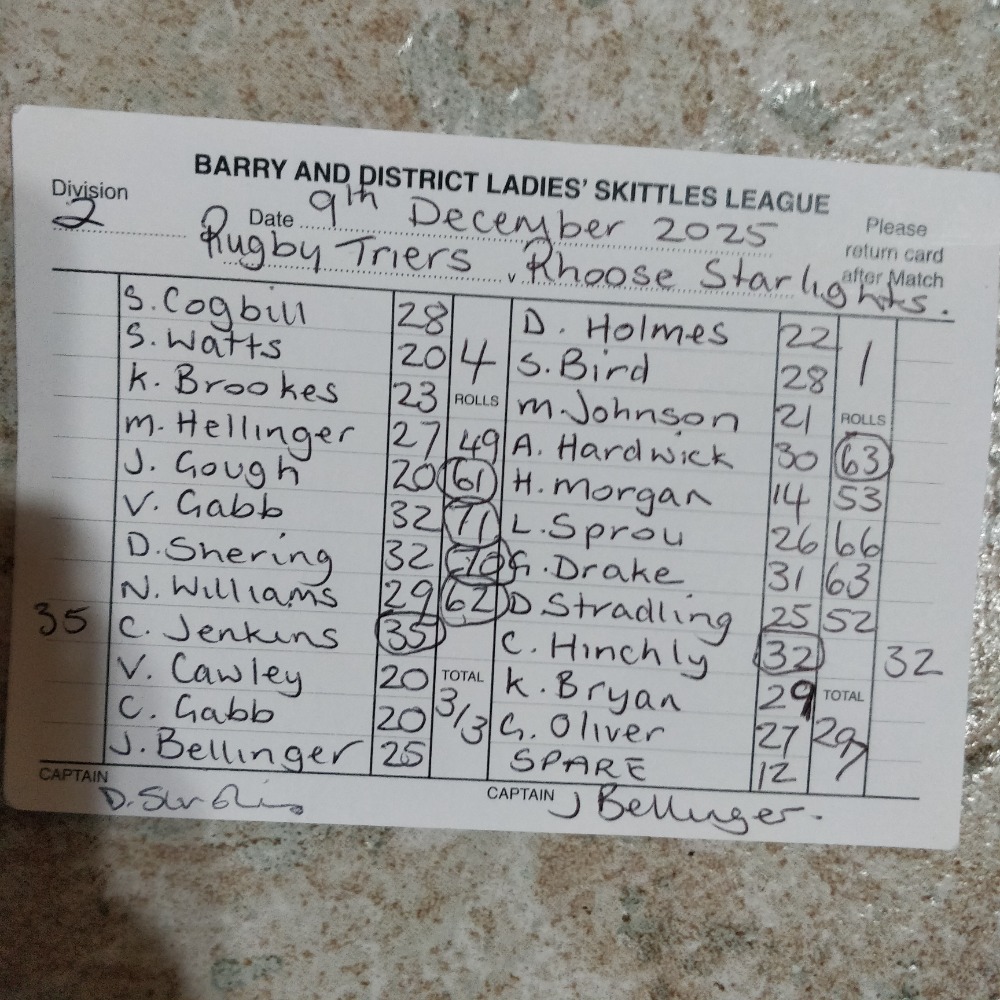 BARRY AND DISTRICT LADIES' SKITTLES LEAGUE
Division 2
Date 9th December 2025
Please return card after Match
Rugby Triers v Rhoose Starlights.
S. Cogbill 28 D. Holmes 22
S. Watts 20 4 S. Bird 28 1
K. Brookes 23 ROLLS M. Johnson 21 ROLLS
M. Hellinger 27 49 A. Hardwick 30 63
J. Gough 20 61 H. Morgan 14 53
V. Gabb 32 71 L. Sprou 26 66
D. Shering 32 70 G. Drake 31 63
N. Williams 29 62 D. Stradling 25 52
35 C. Jenkins 35 C. Hinchly 32 32
V. Cawley 20 TOTAL K. Bryan 29 TOTAL
C. Gabb 20 313 G. Oliver 27 297
J. Bellinger 25 SPARE 12
CAPTAIN D. CAPTAIN J Bellinger.